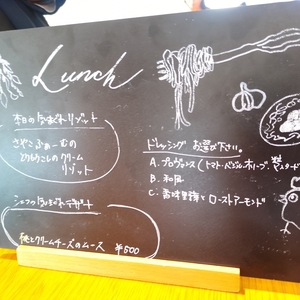 Lunch
本日の気まぐれリゾット
さやこふぁーむの
とうもろこしのクリーム
リゾット
シェフの気まぐれデザート
桃とクリームチーズのムース ¥500
ドレッシング お選び下さい。
A. プロヴァンス(トマト・バジル・オリーブ・
マスタード
B. 和風
C. 香味 とローストアーモンド